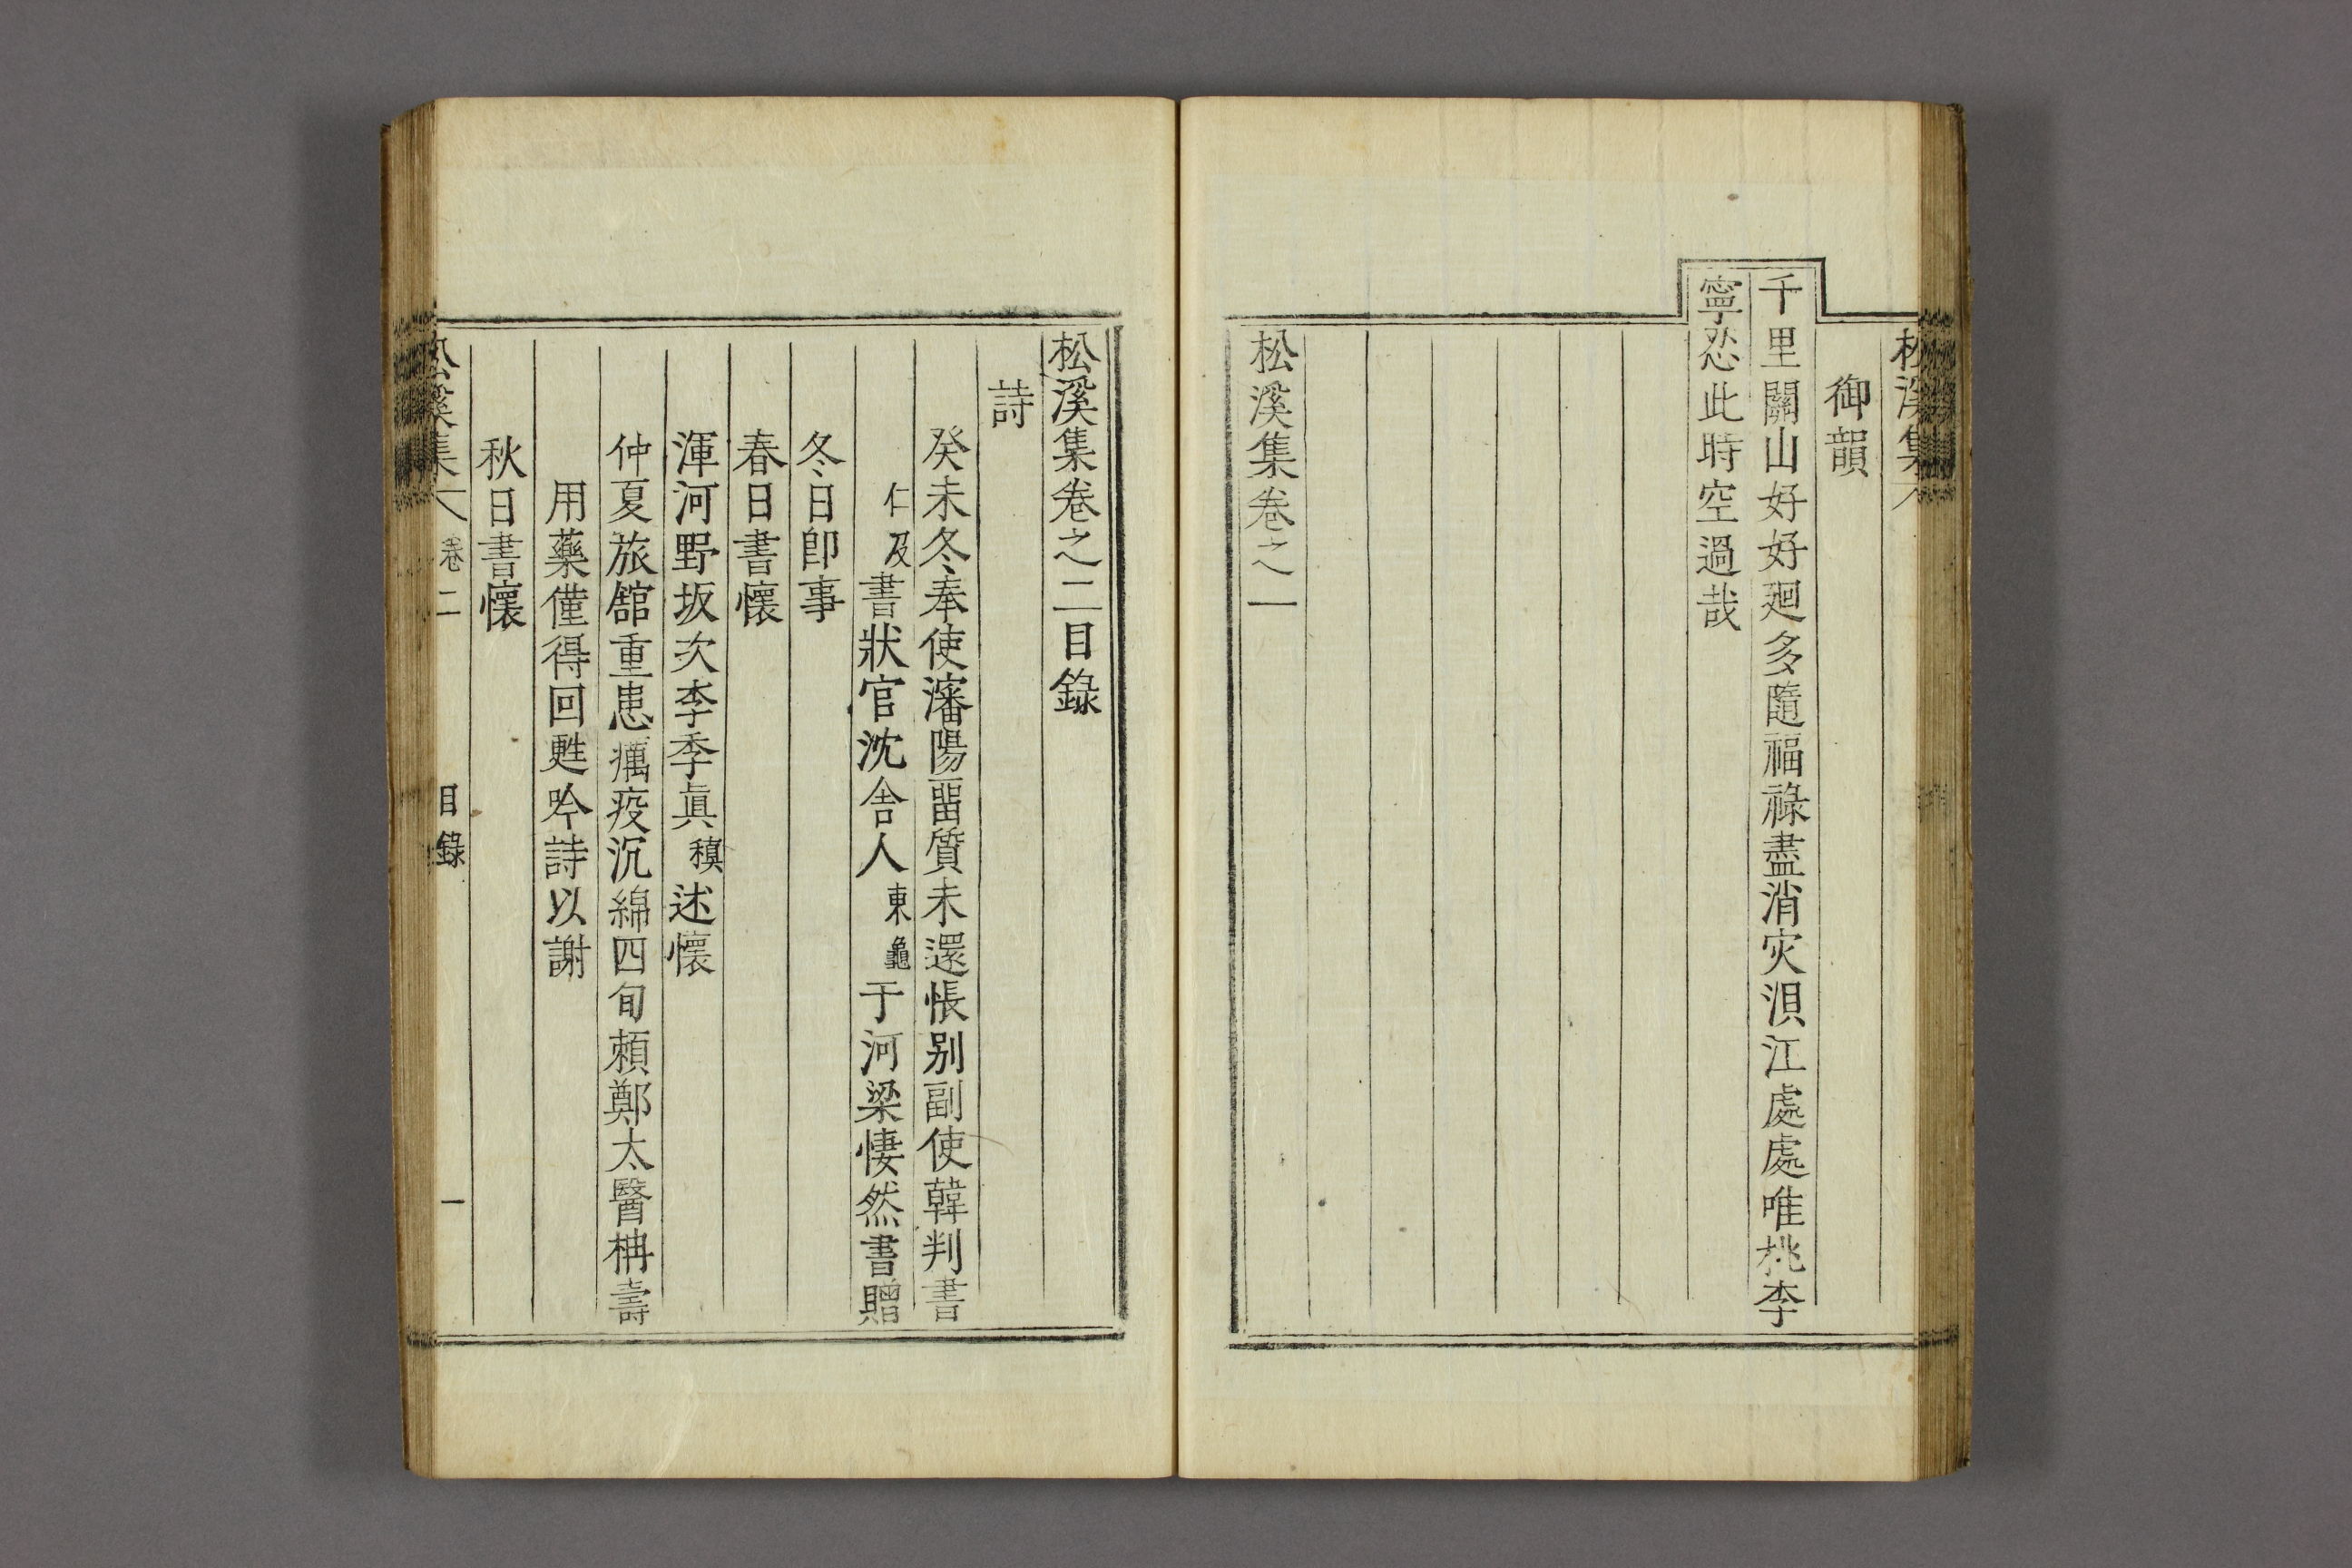 松溪集
御韻
千里關山好好廻多隨福祿盡消灾浿江處處唯桃李
寧忍此時空過哉
松溪集卷之一
松溪集卷之二目錄
詩
癸未冬奉使瀋陽畱質未還悵别副使韓判書
仁及書狀官沈舍人東龜于河梁悽然書贈
冬日卽事
春日書懷
渾河野坂次李季眞䅡述懷
仲夏旅舘重患癘疫沉綿四旬頼鄭太醫柟壽
用藥僅得回甦吟詩以謝
秋日書懷
松溪集 卷二 目錄 一